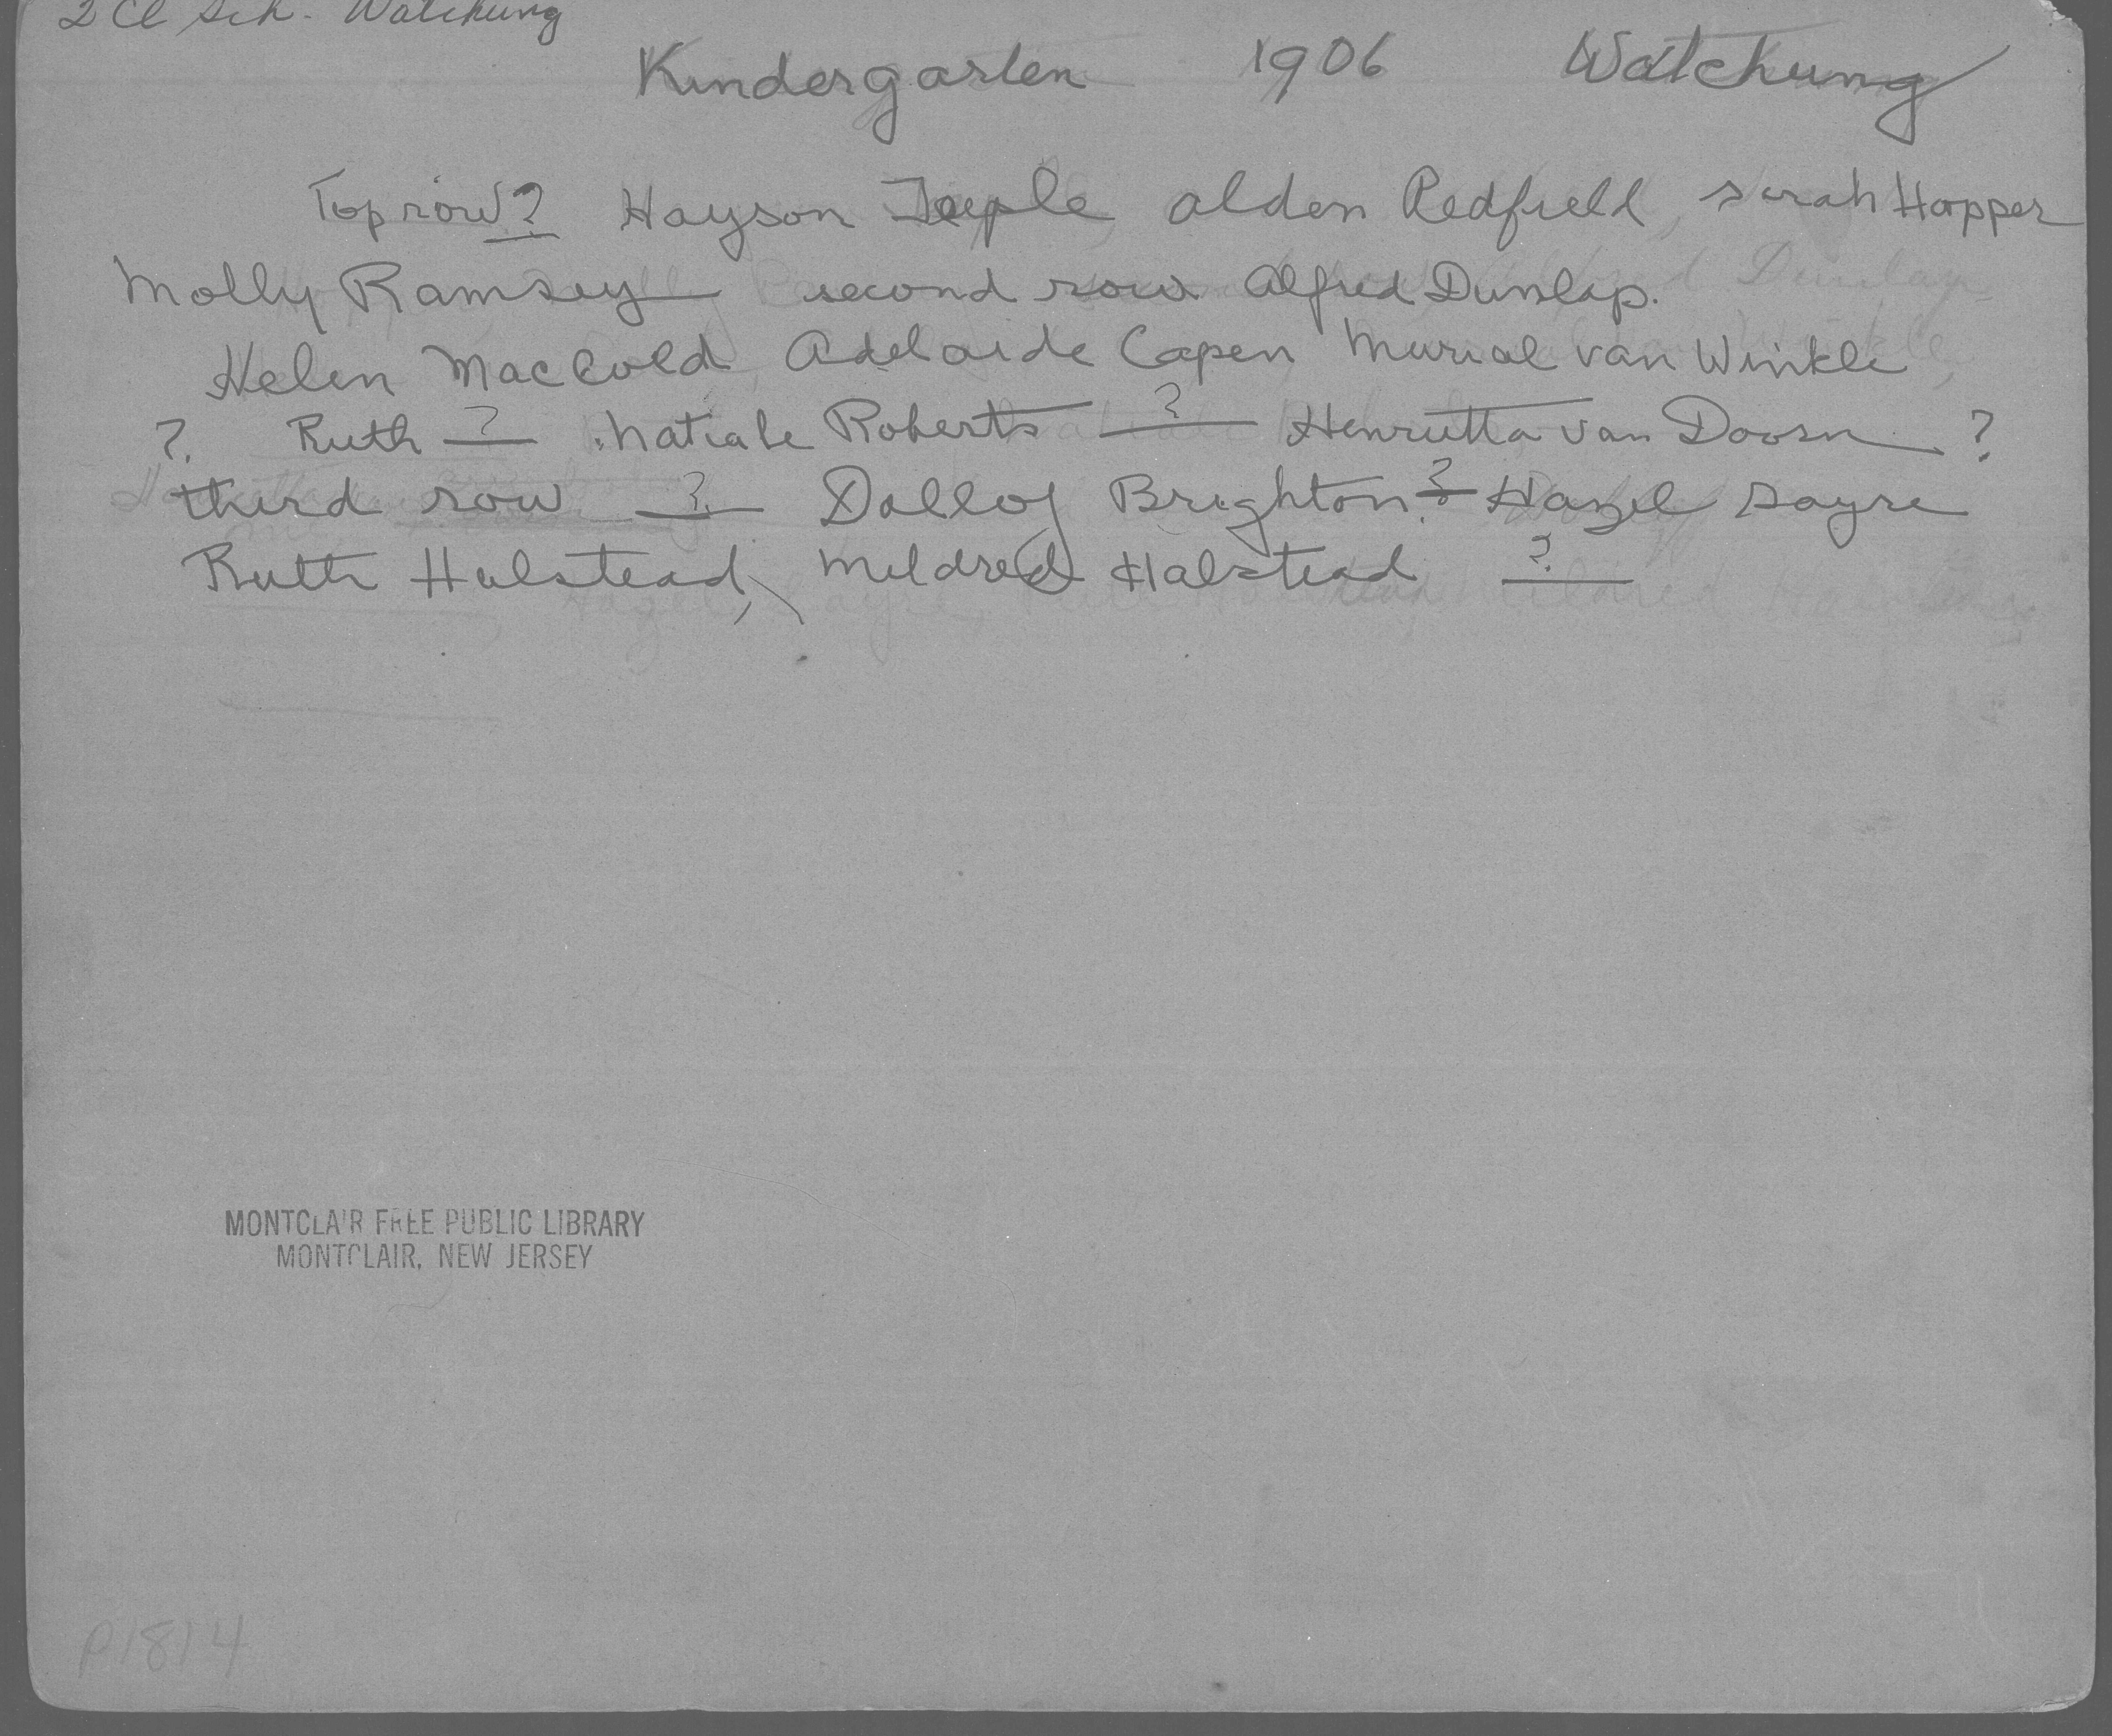 2 Cl Sch. Watchung
Kindergarten 1906 Watchung
Top row ? Hayson Teeple Alden Redfield, Sarah Hopper
Molly Ramsey second row Alfred Dunlap.
Helen MacCold, Adelaide Capen Murial van Winkle
? Ruth ? Natiale Roberts ? Henrietta van Doorn ?
third row ? Dolloy Brighton ? Hazel Sayre
Ruth Halstead, Mildred Halstead ?
MONTCLAIR FREE PUBLIC LIBRARY
MONTCLAIR, NEW JERSEY
P1814